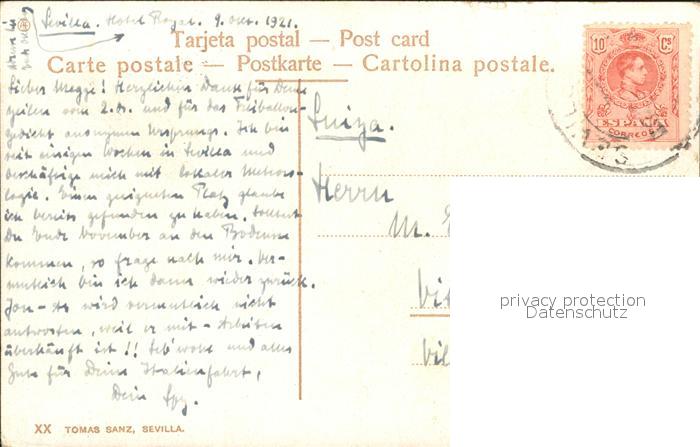 Sevilla. Hotel Royal. 9. Okt. 1921.
Tarjeta postal — Post card
Carte postale — Postkarte — Cartolina postale.
Lieber Meggi! Herzlichen Dank für Deine
Zeilen vom 2. ds. und für das Freiballon-
gedicht anonymen Ursprungs. Ich bin
seit einigen Wochen in Sevilla und
beschäftige mich mit lokaler Meteoro-
logie. Einen geeigneten Platz glaube
ich bereits gefunden zu haben. Solltest
Du Ende November an den Bodensee
kommen, so frage nach mir. Ver-
mutlich bin ich dann wieder zurück.
wird vermutlich nicht
antworten, weil er mit Arbeiten
überhäuft ist!! Leb' wohl und alles
Gute für Deine Italienfahrt,
Dein
XX TOMAS SANZ, SEVILLA.
10 Cs
CORREOS
Suiza.
Herrn
M.
privacy protection
Datenschutz